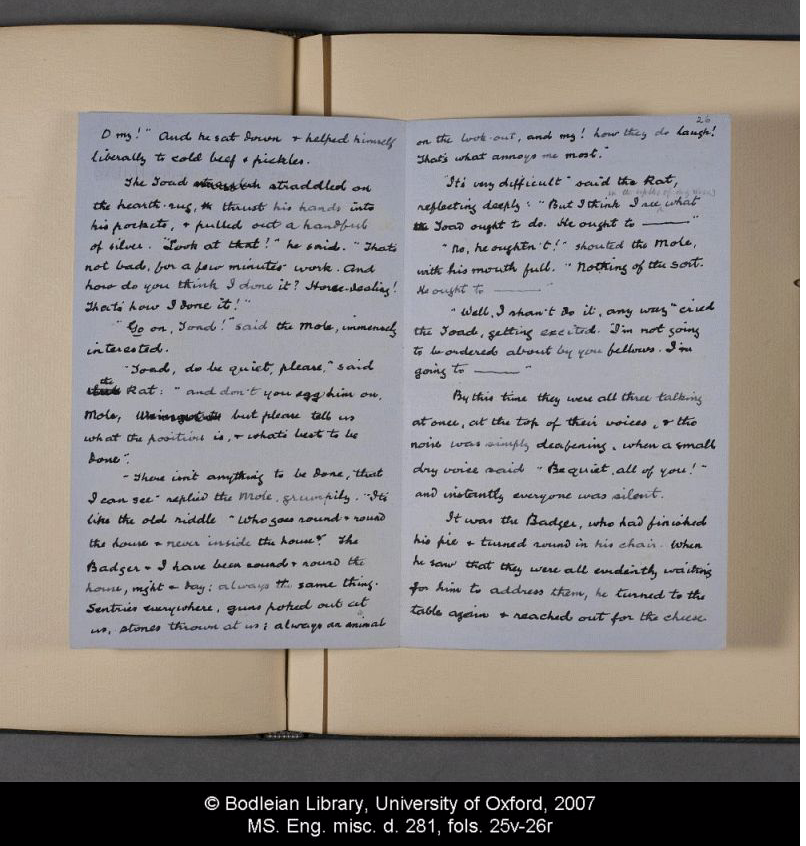 O my!" And he sat down & helped himself
liberally to cold beef & pickles.
The Toad straddled on
the hearth-rug, thrust his hands into
his pockets, & pulled out a handful
of silver. "Look at that!" he said. "Thats
not bad, for a few minutes' work. And
how do you think I done it? Horse-dealing!
Thats how I done it!"
"Go on, Toad!" said the Mole, immensely
interested.
"Toad, do be quiet, please," said
the Rat: "and don't you egg him on,
Mole, but please tell us
what the position is, & what's best to be
done".
"There isn't anything to be done, that
I can see" replied the Mole, grumpily. "It's
like the old riddle "Who goes round & round
the house & never inside the house?" The
Badger & I have been round & round the
house, night & day; always the same thing.
Sentries everywhere, guns poked out at
us, stones thrown at us; always an animal
26
on the look-out, and my! how they do laugh!
That's what annoys me most."
"It's very difficult" said the Rat,
reflecting deeply: "But I think I see, what
in the depths of my mind,
Toad ought to do. He ought to ——"
"No, he oughtn't!" shouted the Mole,
with his mouth full. "Nothing of the sort.
He ought to ——"
"Well, I shan't do it, any way" cried
the Toad, getting excited. "I'm not going
to be ordered about by you fellows. I'm
going to ——"
By this time they were all three talking
at once, at the top of their voices, & the
noise was simply deafening, when a small
dry voice said "Be quiet, all of you!"
and instantly everyone was silent.
It was the Badger, who had finished
his pie & turned round in his chair. When
he saw that they were all evidently waiting
for him to address them, he turned to the
table again & reached out for the cheese.
© Bodleian Library, University of Oxford, 2007
MS. Eng. misc. d. 281, fols. 25v-26r